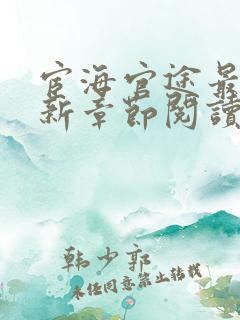 宦海官途最
新章節閱讀
韩少郭
未经同意禁止转载